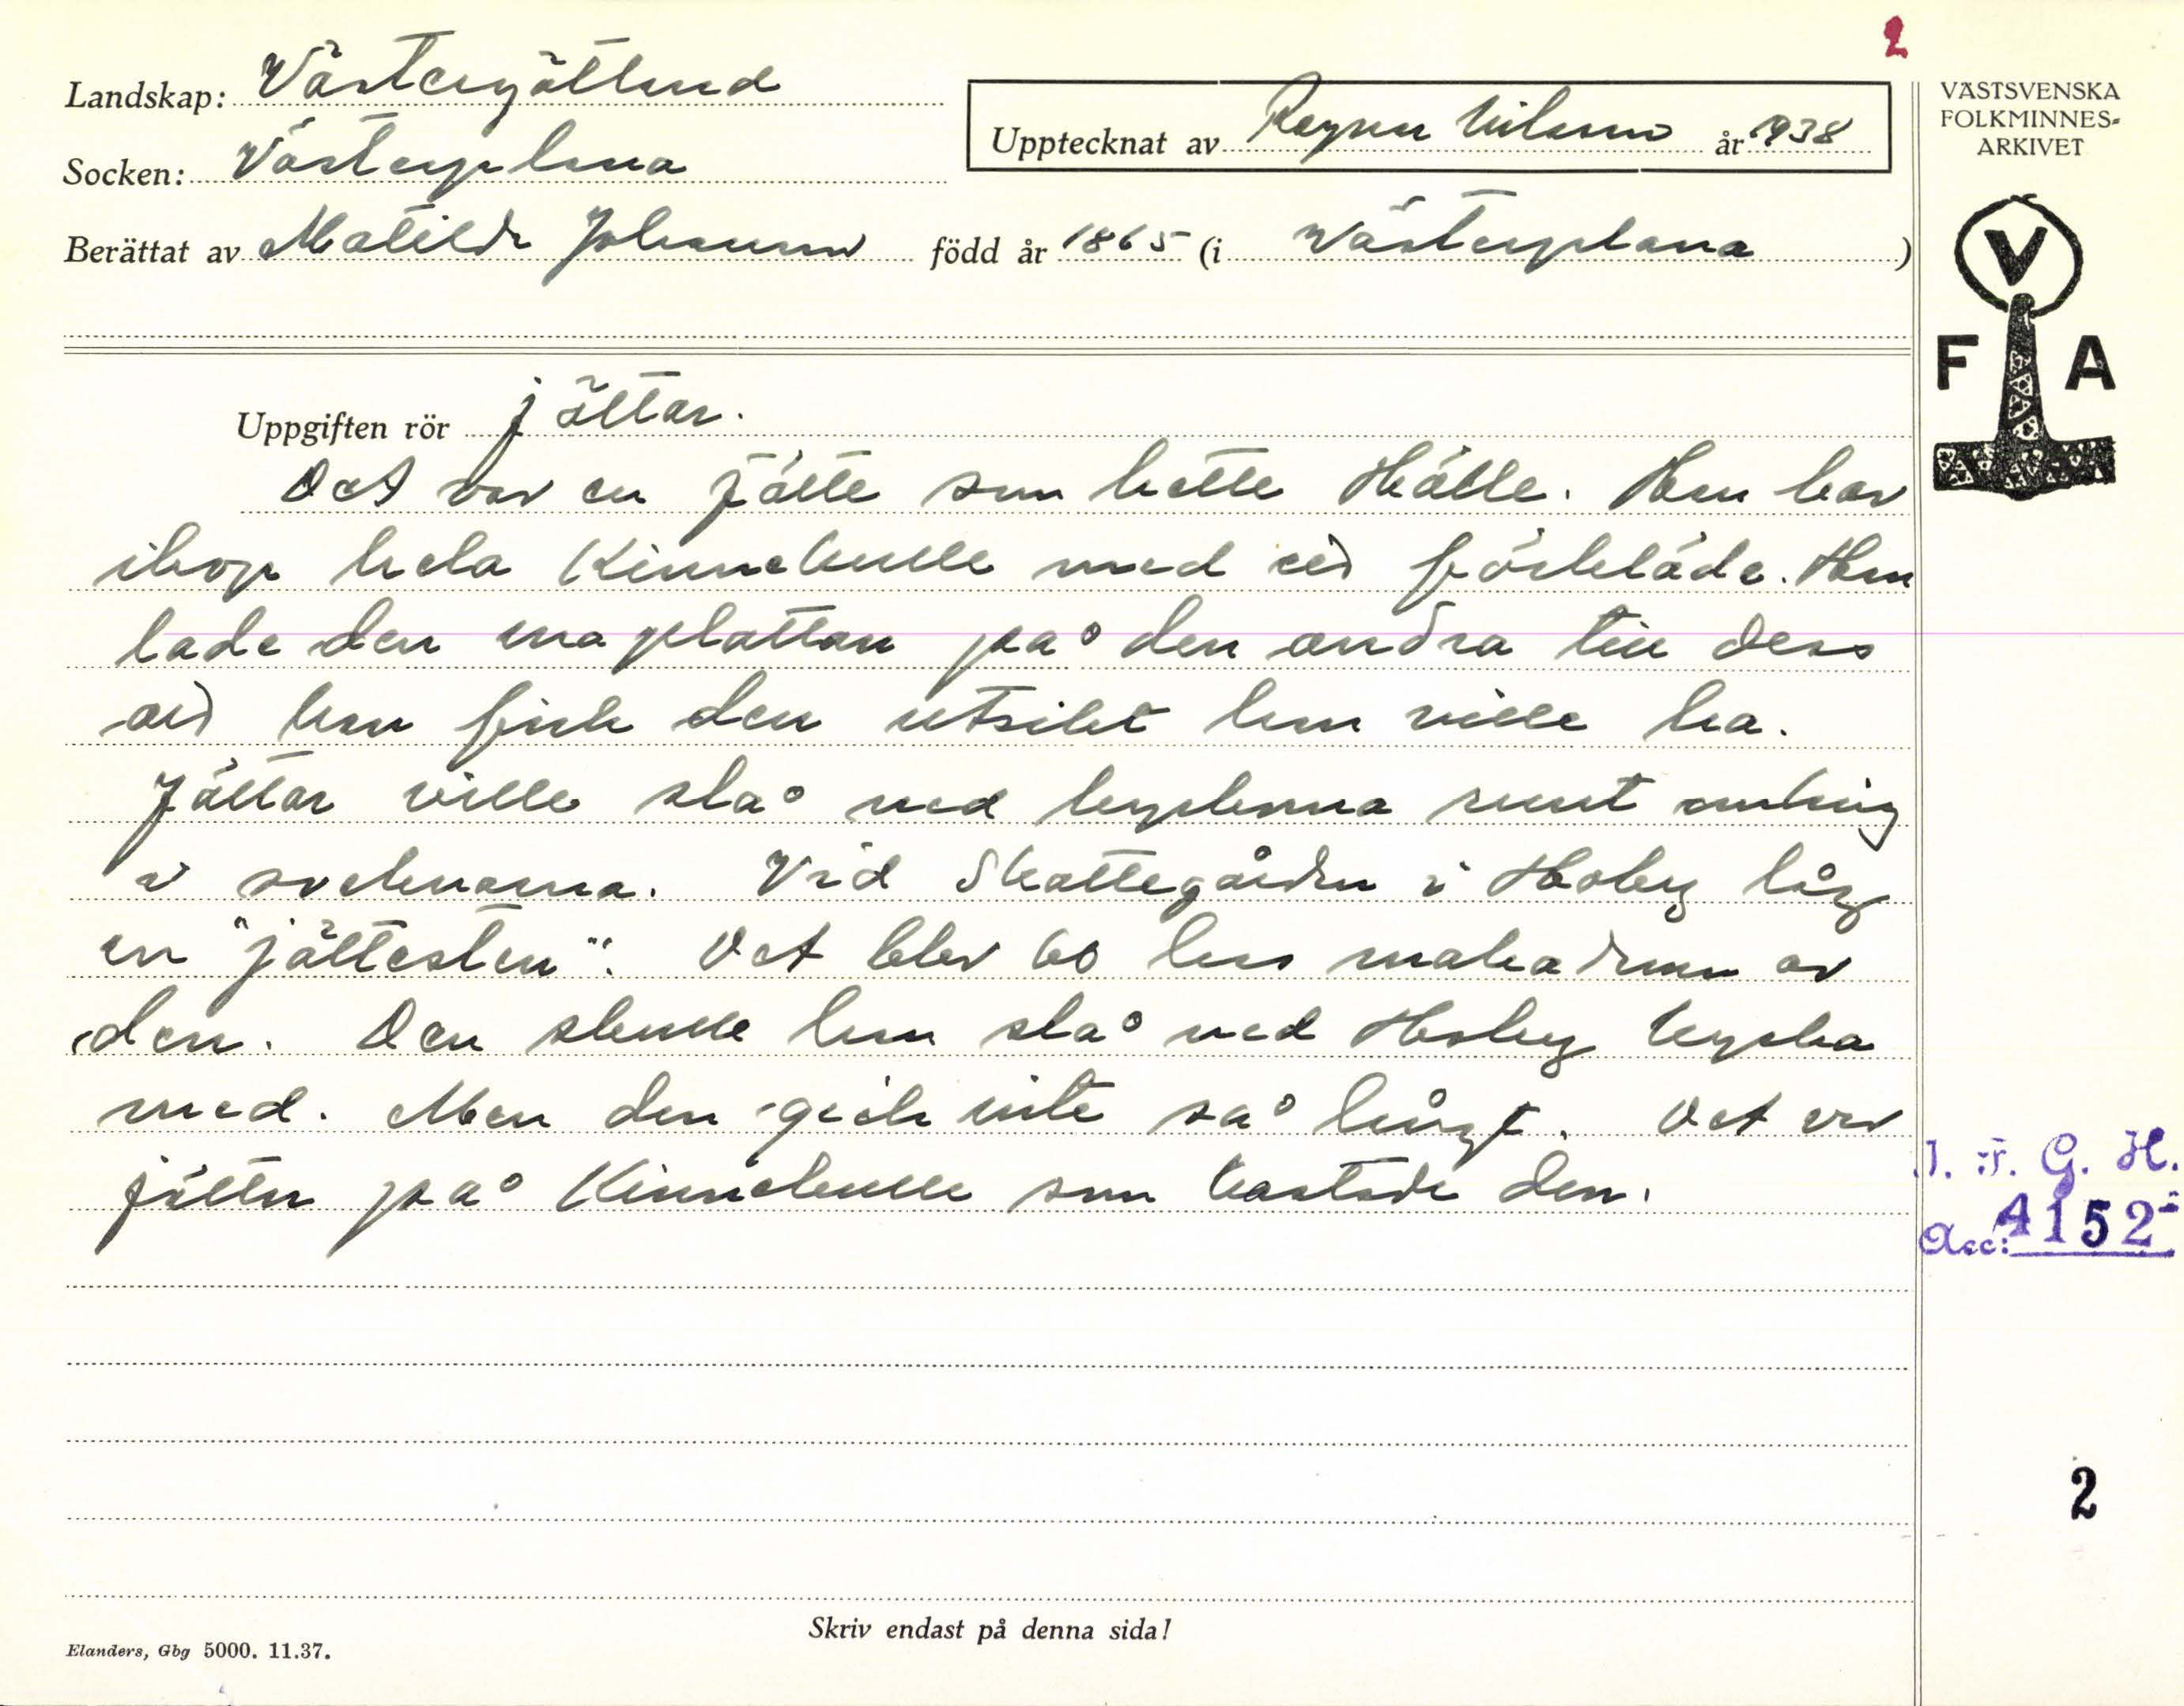 2
Landskap: Västergötland
VÄSTSVENSKA
FOLKMINNES-
ARKIVET
Upptecknat av Ragnar Nilsson år 1938
Socken: Västerplana
Berättat av Matilda Johansson född år 1865 (i Västerplana)
V
F A
Uppgiften rör jättar.
Det var en jätte som hette Hälle. Han bar
ihop hela Kinnekulle med ett förkläde. Han
lade den ena plattan på den andra till dess
att han fick den utsikt han ville ha.
Jättar ville slå ned kyrkorna runt omkring
i socknarna. Vid Skattegården i Hasby låg
en "jättesten". Det blev 60 lass makadam av
den. Den skulle han slå ned Husby kyrka
med. Men den gick inte så långt. Det var
jätten på Kinnekulle som kastade den.
I. F. G. H.
Acc: 4152
2
Skriv endast på denna sida!
Elanders, Gbg 5000. 11.37.